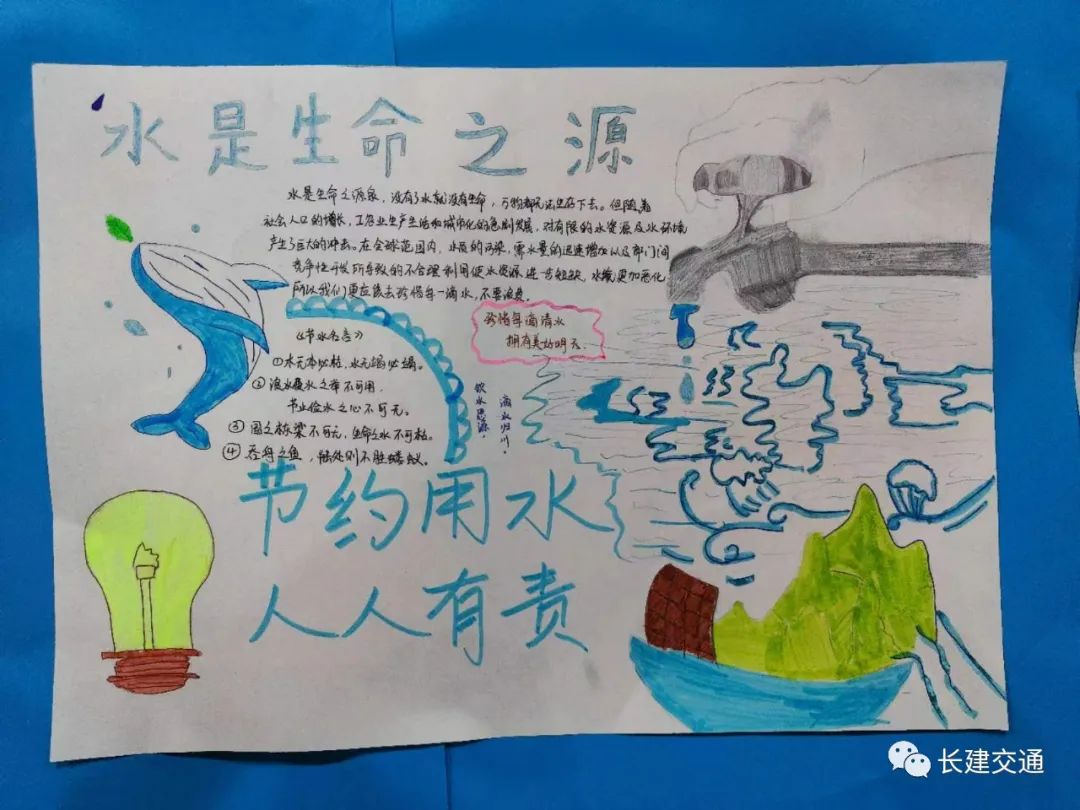 水是生命之源
水是生命之源泉，没有了水就没有生命，万物都无法生存下去。但随着
社会人口的增长，工农业生产生活和城市化的急剧发展，对有限的水资源及水环境
产生了巨大的冲击。在全球范围内，水质的污染，需水量的迅速增加以及部门间
竞争性开发所导致的不合理利用使水资源进一步短缺，水境更加恶化
所以我们更应该去珍惜每一滴水，不要浪费。
珍惜每滴清水
拥有美好明天
《节水名言》
①水元本必枯，水元竭必竭。
②浪水费水之举不可用，
节业俭水之心不可无。
③国之栋梁不可无，生命之水不可枯。
④吞舟之鱼，陆处则不胜蝼蚁。
饮水思源，
滴水归川。
节约用水
人人有责
长建交通